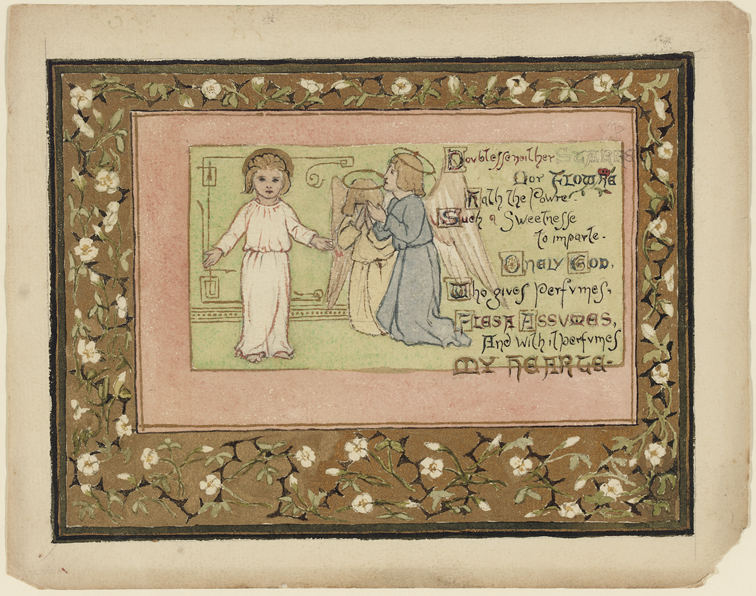 Doubtlesse neither STARRE
Nor FLOWRE
Hath the Powre
Such a Sweetnesse
to imparte.
Onely God,
Who gives Perfvmes,
FLESH ASSVMES,
And with it perfvmes
MY HEARTE.